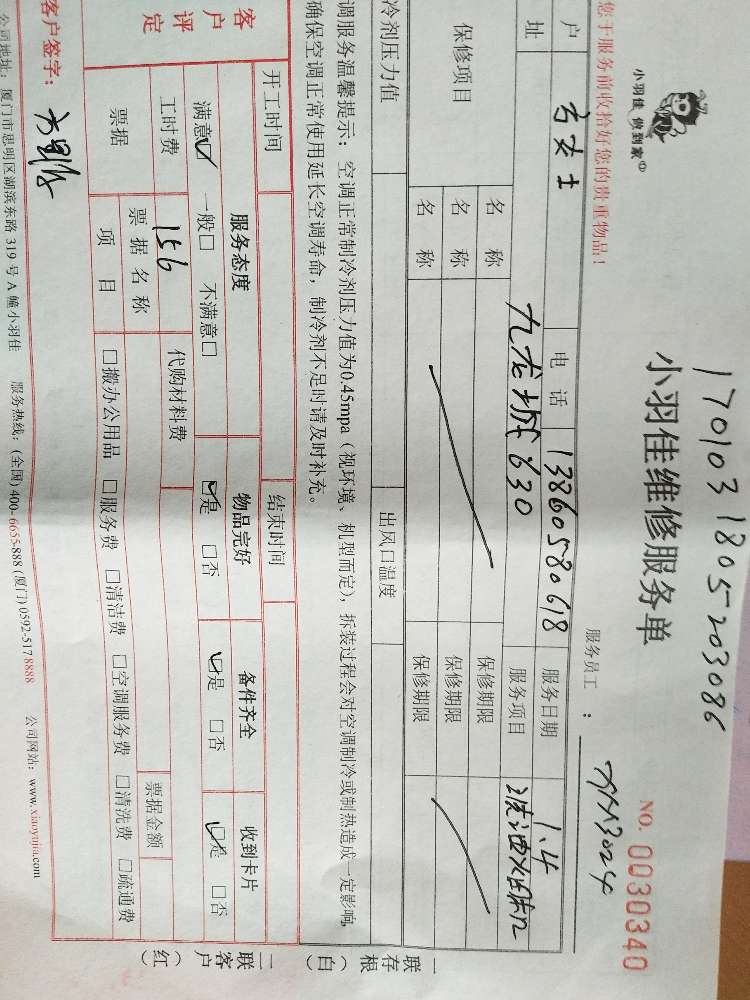 170103 1805203086
小羽佳 做到家
小羽佳维修服务单
NO. 0030340
您于服务前收拾好您的贵重物品！
服务员工 ： XM3024
户 方女士 电 话 13860580618 服务日期 1.4
址 九龙城630 服务项目
保修项目
名 称 保修期限
名 称 保修期限
名 称 保修期限
冷剂压力值 出风口温度
调服务温馨提示： 空调正常制冷剂压力值为0.45mpa（视环境、机型而定），拆装过程会对空调制冷或制热造成一定影响,
确保空调正常使用延长空调寿命，制冷剂不足时请及时补充。
开工时间 结束时间
客户评定
服务态度 物品完好 备件齐全 收到卡片
满意☑ 一般□ 不满意□ ☑是 □否 ☑是 □否 ☑是 □否
工时费 156 代购材料费
票据 票据名称 票据金额
项 目 □搬办公用品 □服务费 □清洁费 □空调服务费 □清洗费 □疏通费
客户签字：
公司地址：厦门市思明区湖滨东路 319 号 A 幢小羽佳 服务热线：(全国) 400-6655-888 (厦门) 0592-5178888 公司网站：www.xiaoyujia.com
一联存根（白）
二联客户（红）